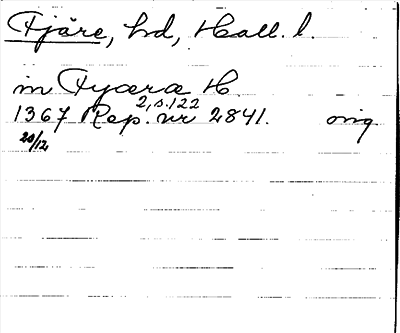 Fjäre, hd, Hall. l.
in Fyæræ H
2, s. 122
1367 Rep. nr 2841. orig
20/12